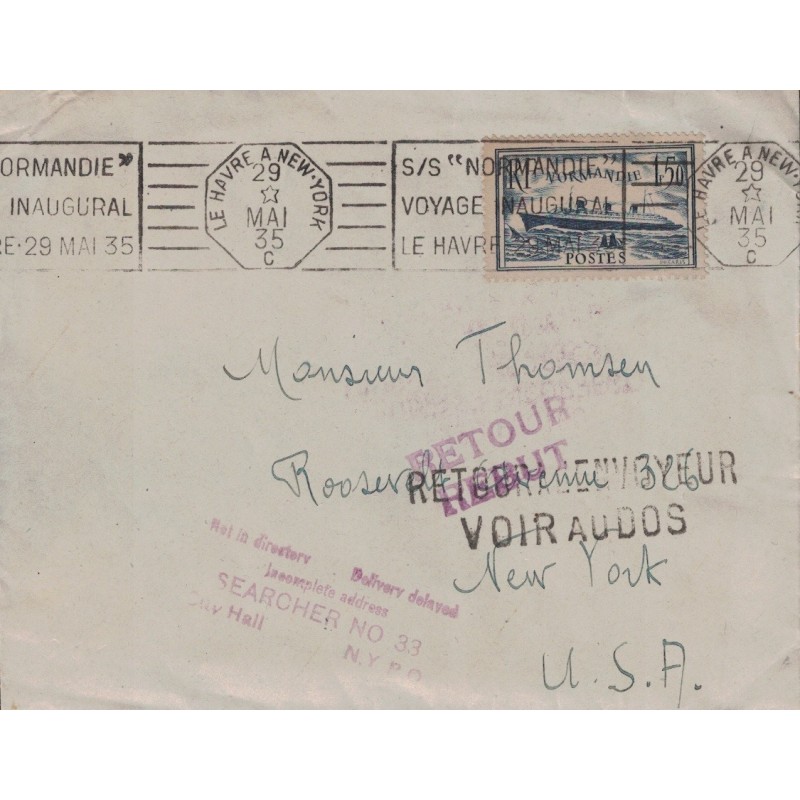 ORMANDIE"
INAUGURAL
RE·29 MAI 35
LE HAVRE A NEW·YORK
29
MAI
35
C
S/S "NORMANDIE"
VOYAGE INAUGURAL
LE HAVRE·29 MAI 35
RF NORMANDIE 1,50
POSTES
LE HAVRE A NEW·YORK
29
MAI
35
C
Monsieur Thomsen
RETOUR
REBUT
Roosevelt Avenue 326
RETOUR A L'ENVOYEUR
VOIR AU DOS
Not in directory
Delivery delayed
Incomplete address
SEARCHER NO 33
City Hall
N.Y.P.O.
New York
U.S.A.